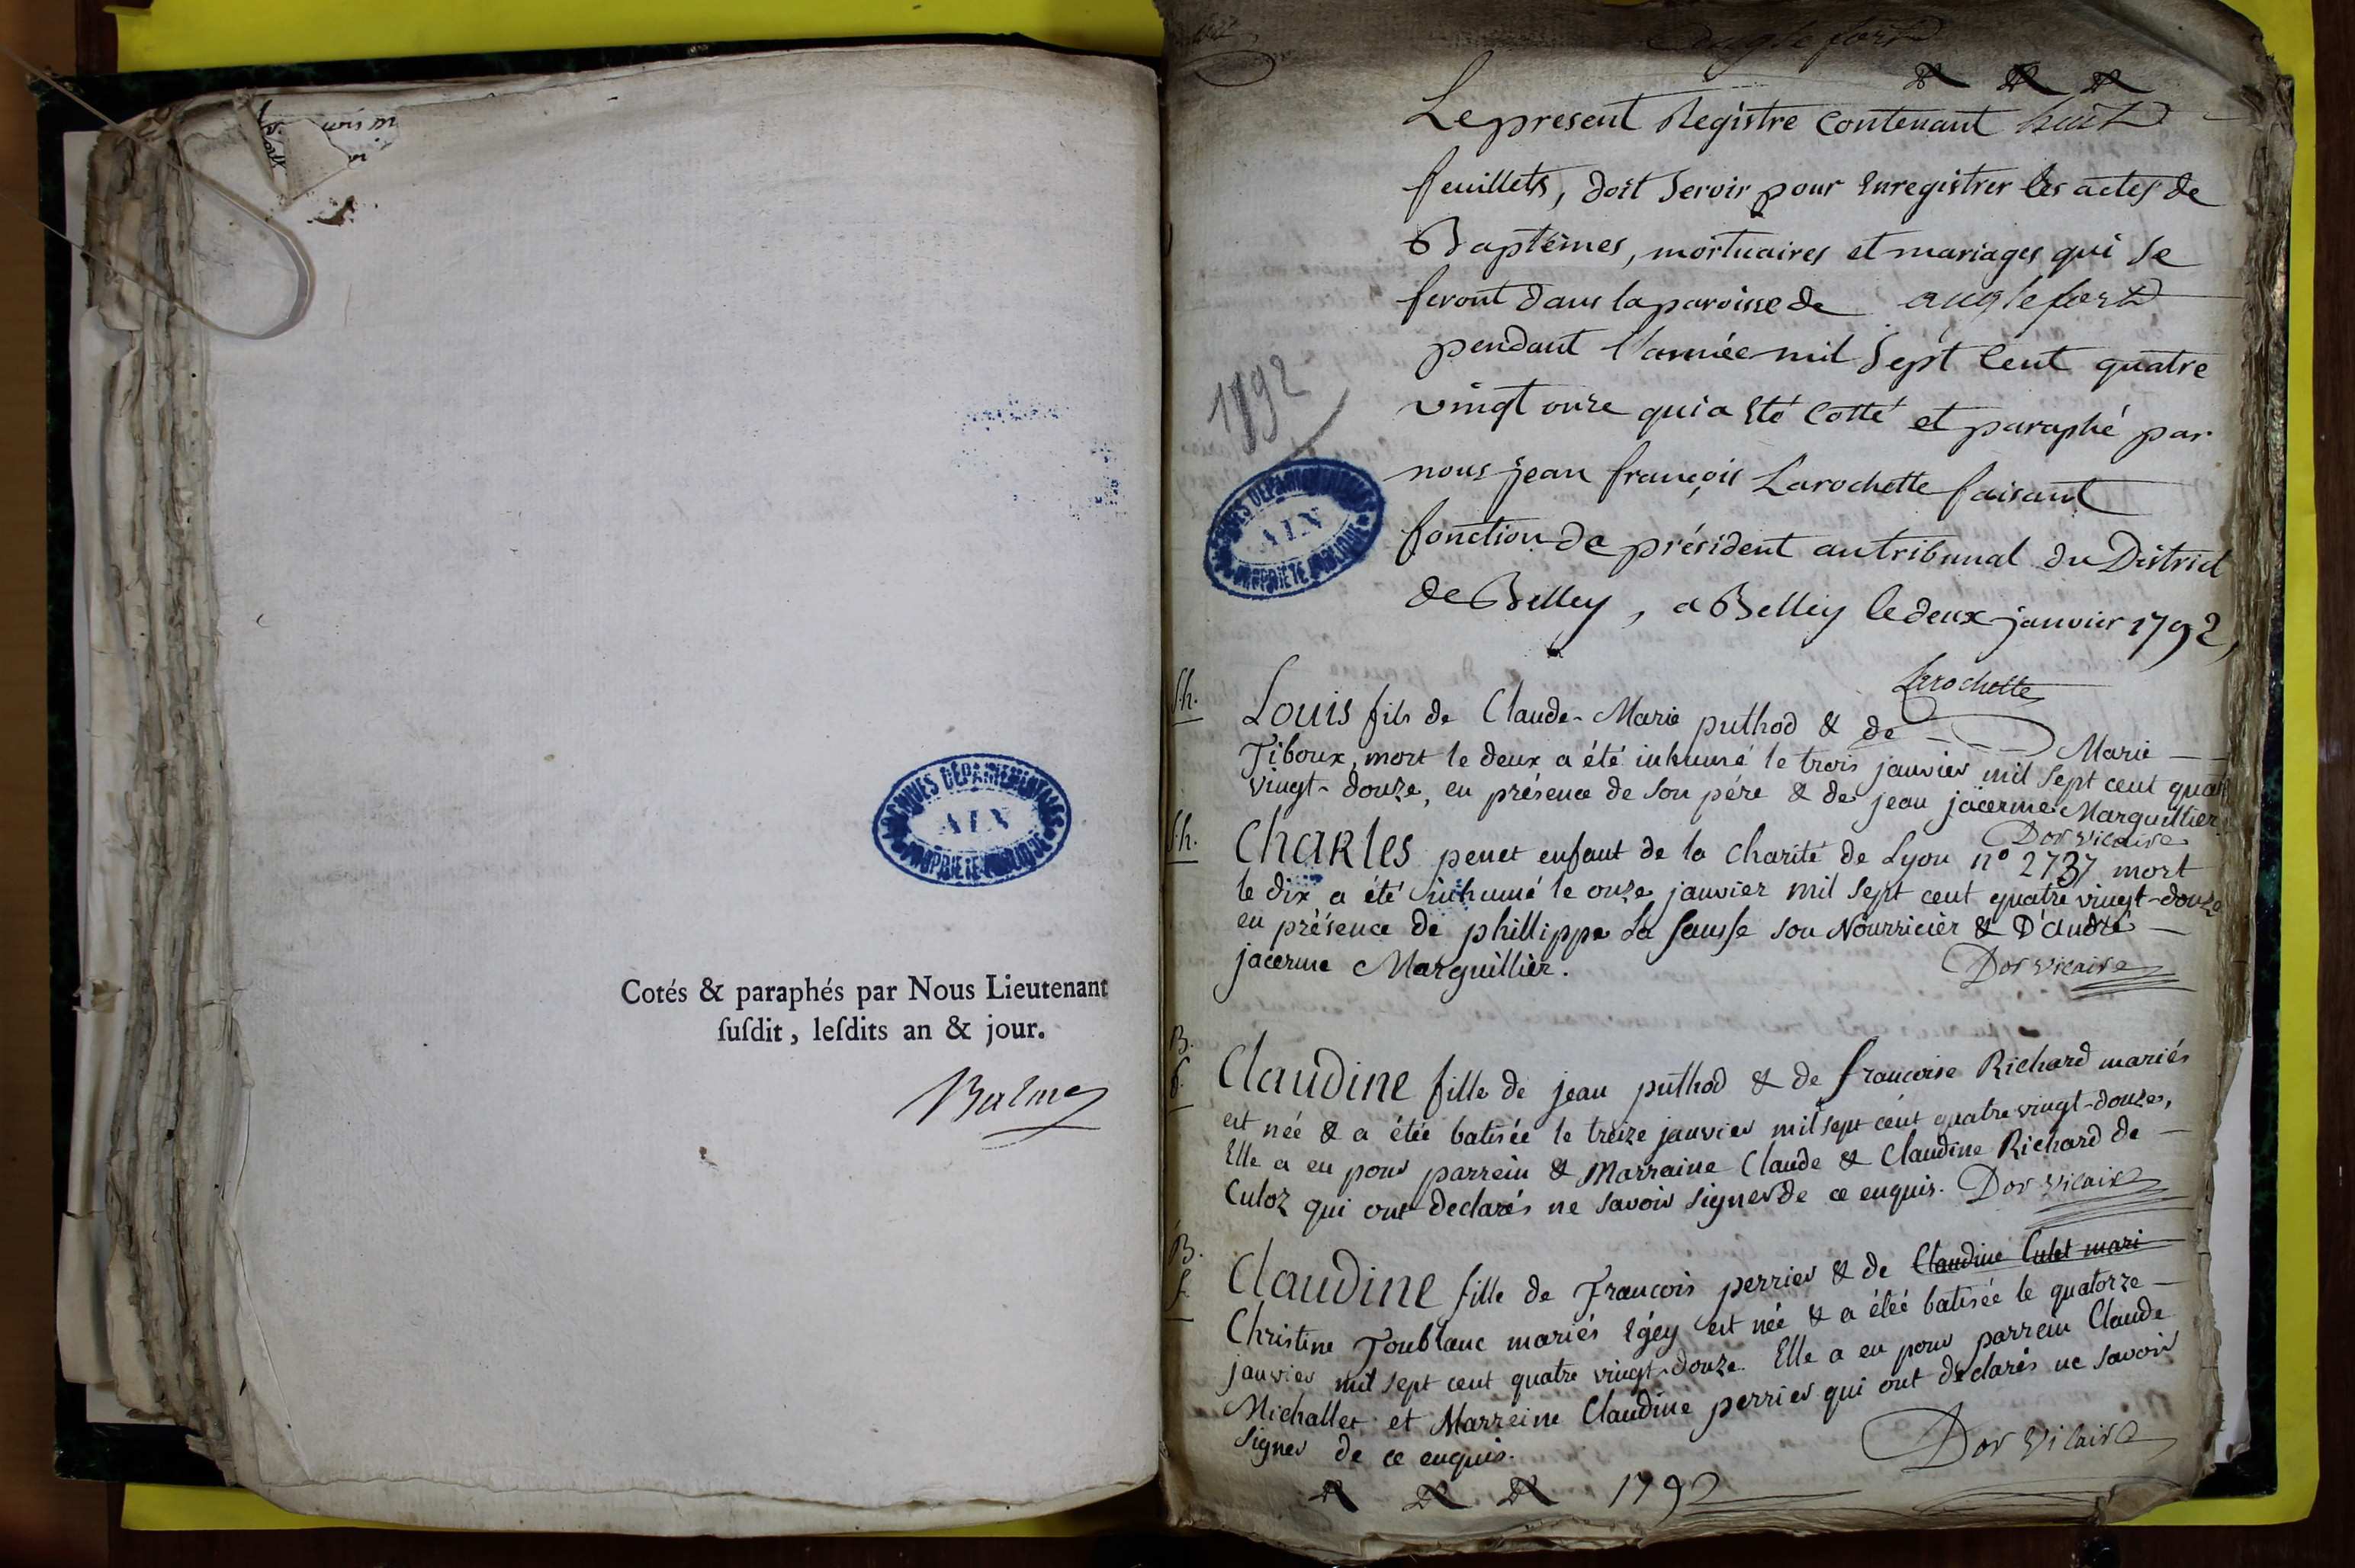 ARCHIVES DÉPARTEMENTALES
AIN
PROPRIÉTÉ PUBLIQUE
Cotés & paraphés par Nous Lieutenant
ſuſdit, leſdits an & jour.
Balme
anglefort
Le present Registre Contenant huit
feuillets, doit Servir pour Enregistrer les actes de
Baptêmes, mortuaires et mariages qui Se
feront dans la paroisse de anglefort
pendant l'année mil Sept Cent quatre
vingt onze qui a Eté Cotté et paraphé par
nous jean françois Larochette faisant
fonction de président au tribunal du District
de Belley, a Belley le deux janvier 1792,
1792
ARCHIVES DÉPARTEMENTALES
AIN
PROPRIÉTÉ PUBLIQUE
Larochette
S.h.
Louis fils de Claude-Marie puthod & de Marie
Tiboux, mort le deux a été inhumé le trois janvier mil sept cent quatre
vingt-douze, en présence de son pére & de jean jacerme Marguillier.
Dor vicaire
S.h.
Charles penet enfant de la charité de Lyon n° 2737 mort
le dix a été inhumé le onze janvier mil sept cent quatre vingt-douze
en présence de phillippe La sausse son Nourricier & D'andré
jacerme Marguillier.
Dor vicaire
B.
f.
Claudine fille de jean puthod & de francoise Richard mariés
est néé & a étée batisée le treize janvier mil sept cent quatre vingt-douze,
Elle a eu pour parrein & Marraine Claude & Claudine Richard de
Culoz qui ont declarés ne savoir signer de ce enquis. Dor vicaire
B.
f.
Claudine fille de Francois perrier & de Claudine Culet mari
Christine Toublanc mariés Egéy est néé & a étéé batiséé le quatorze
janvier mil sept cent quatre vingt-douze. Elle a eu pour parrein Claude
Michallet et Marreine Claudine perrier qui ont déclarés ne savoir
signer de ce enquis.
Dor Vicaire
1792